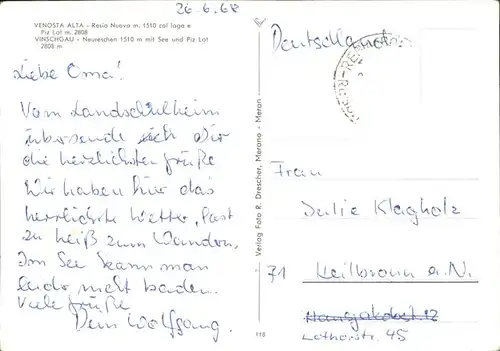 26.6.68
VENOSTA ALTA - Resia Nuova m. 1510 col lago e
Piz Lat m. 2808
VINSCHGAU - Neureschen 1510 m mit See und Piz Lat
2808 m
Liebe Oma!
Vom Landschulheim
übersende ich Dir
die herzlichsten Grüße
Wir haben hier das
herrlichste Wetter, fast
zu heiß zum Wandern.
Im See kann man
leider nicht baden.
Viele Grüße
Dein Wolfgang.
Verlag Foto R. Drescher, Merano - Meran
118
Deutschland
Frau
Julie Klagholz
71 Heilbronn a.N.
Hansjakobst. 12
Lotharstr. 45